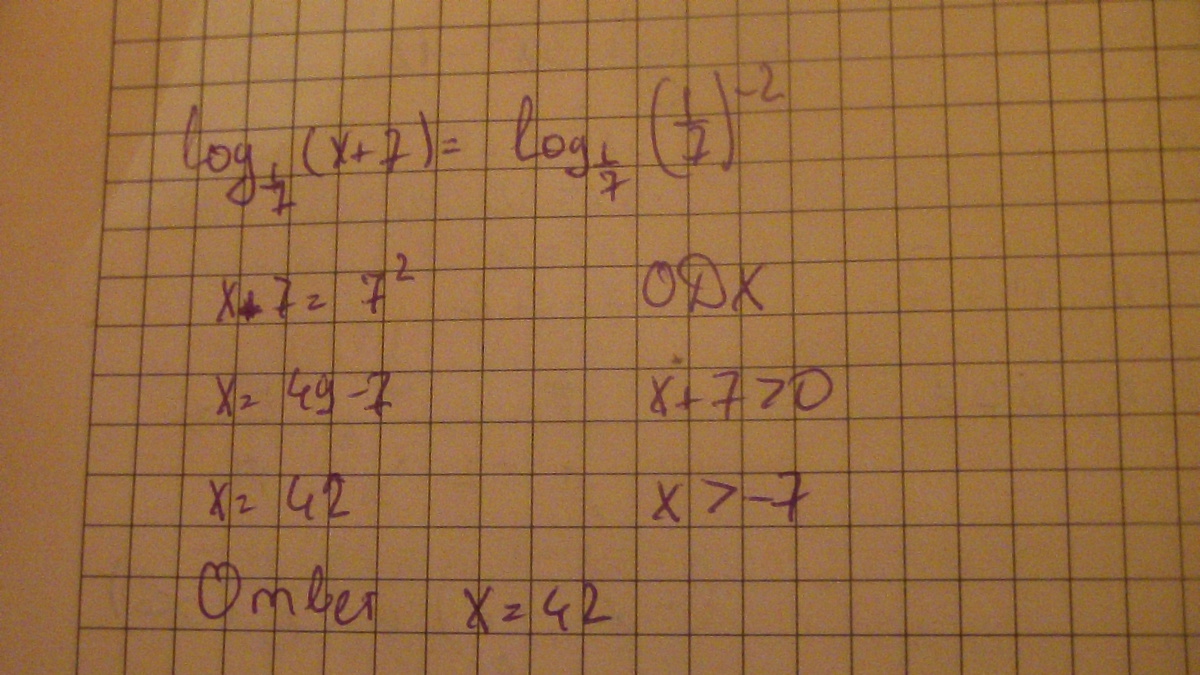 log_{1/7} (x+7) = log_{1/7} (1/7)^{-2}
x+7 = 7² ОДХ
x = 49-7 x+7>0
x = 42 x > -7
Ответ x = 42